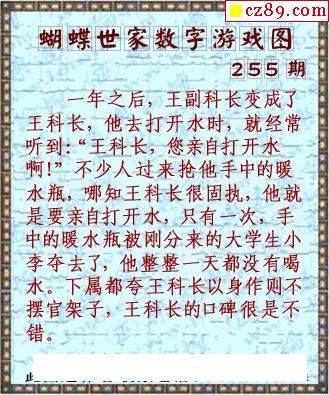 cz89.com
蝴蝶世家数字游戏图
255 期
一年之后，王副科长变成了
王科长，他去打开水时，就经常
听到：“王科长，您亲自打开水
啊！”不少人过来抢他手中的暖
水瓶，哪知王科长很固执，他就
是要亲自打开水，只有一次，手
中的暖水瓶被刚分来的大学生小
李夺去了，他整整一天都没有喝
水。下属都夸王科长以身作则不
摆官架子，王科长的口碑很是不
错。